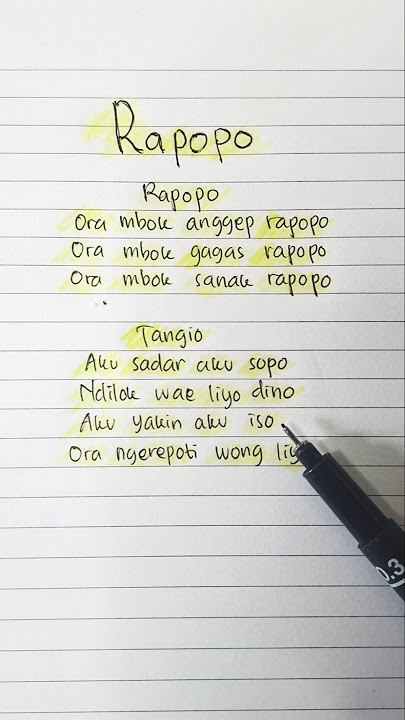 Rapopo
Rapopo
Ora mbok anggep rapopo
Ora mbok gagas rapopo
Ora mbok sanak rapopo
Tangio
Aku sadar aku sopo
Ndilok wae liyo dino
Aku yakin aku iso
Ora ngerepoti wong
0.3